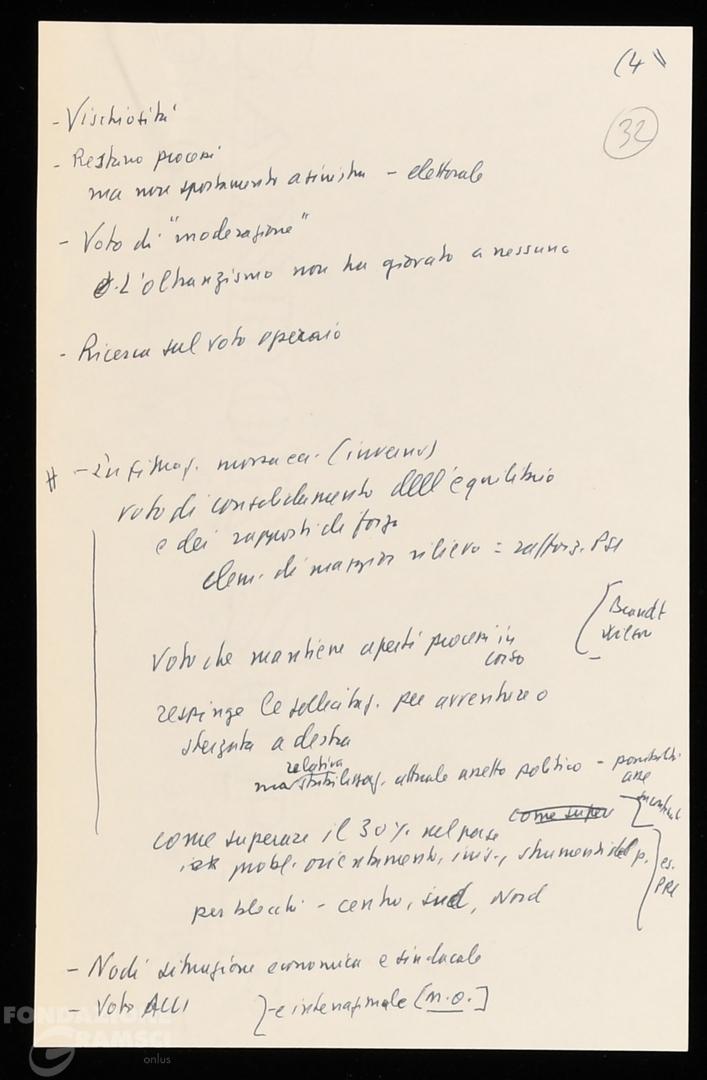 (4))
32
- Vischiosità
- Restano processi
ma non spostamento a sinistra - elettorale
- Voto di "moderazione"
L'oltranzismo non ha giovato a nessuno
- Ricerca sul voto operaio
(invano)
voto di consolidamento dell'equilibrio
e dei rapporti di forza
elem. di maggior rilievo = rafforz. PSI
Voto che mantiene aperti processi in corso
[Brandt
Wilson
respinge le sollecitaz. per avventure o
sterzata a destra
ma relativa stabilizzaz. attuale assetto politico -
come superare il 30% nel paese come super
probl. orientamento, iniz., strumenti del p.
es.
PRI
per blocchi - centro, sud, Nord
- Nodi situazione economica e sindacale
- Voto ACLI
}- e internazionale [m.o.]
FONDAZIONE
GRAMSCI
onlus